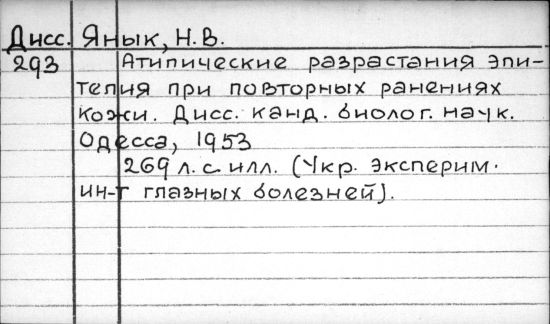 Дисс. Янык, Н.В.
293 Атипические разрастания эпи-
телия при повторных ранениях
кожи. Дисс. канд. биолог. наук.
Одесса, 1953
269 л. с илл. (Укр. эксперим.
ин-т глазных болезней).